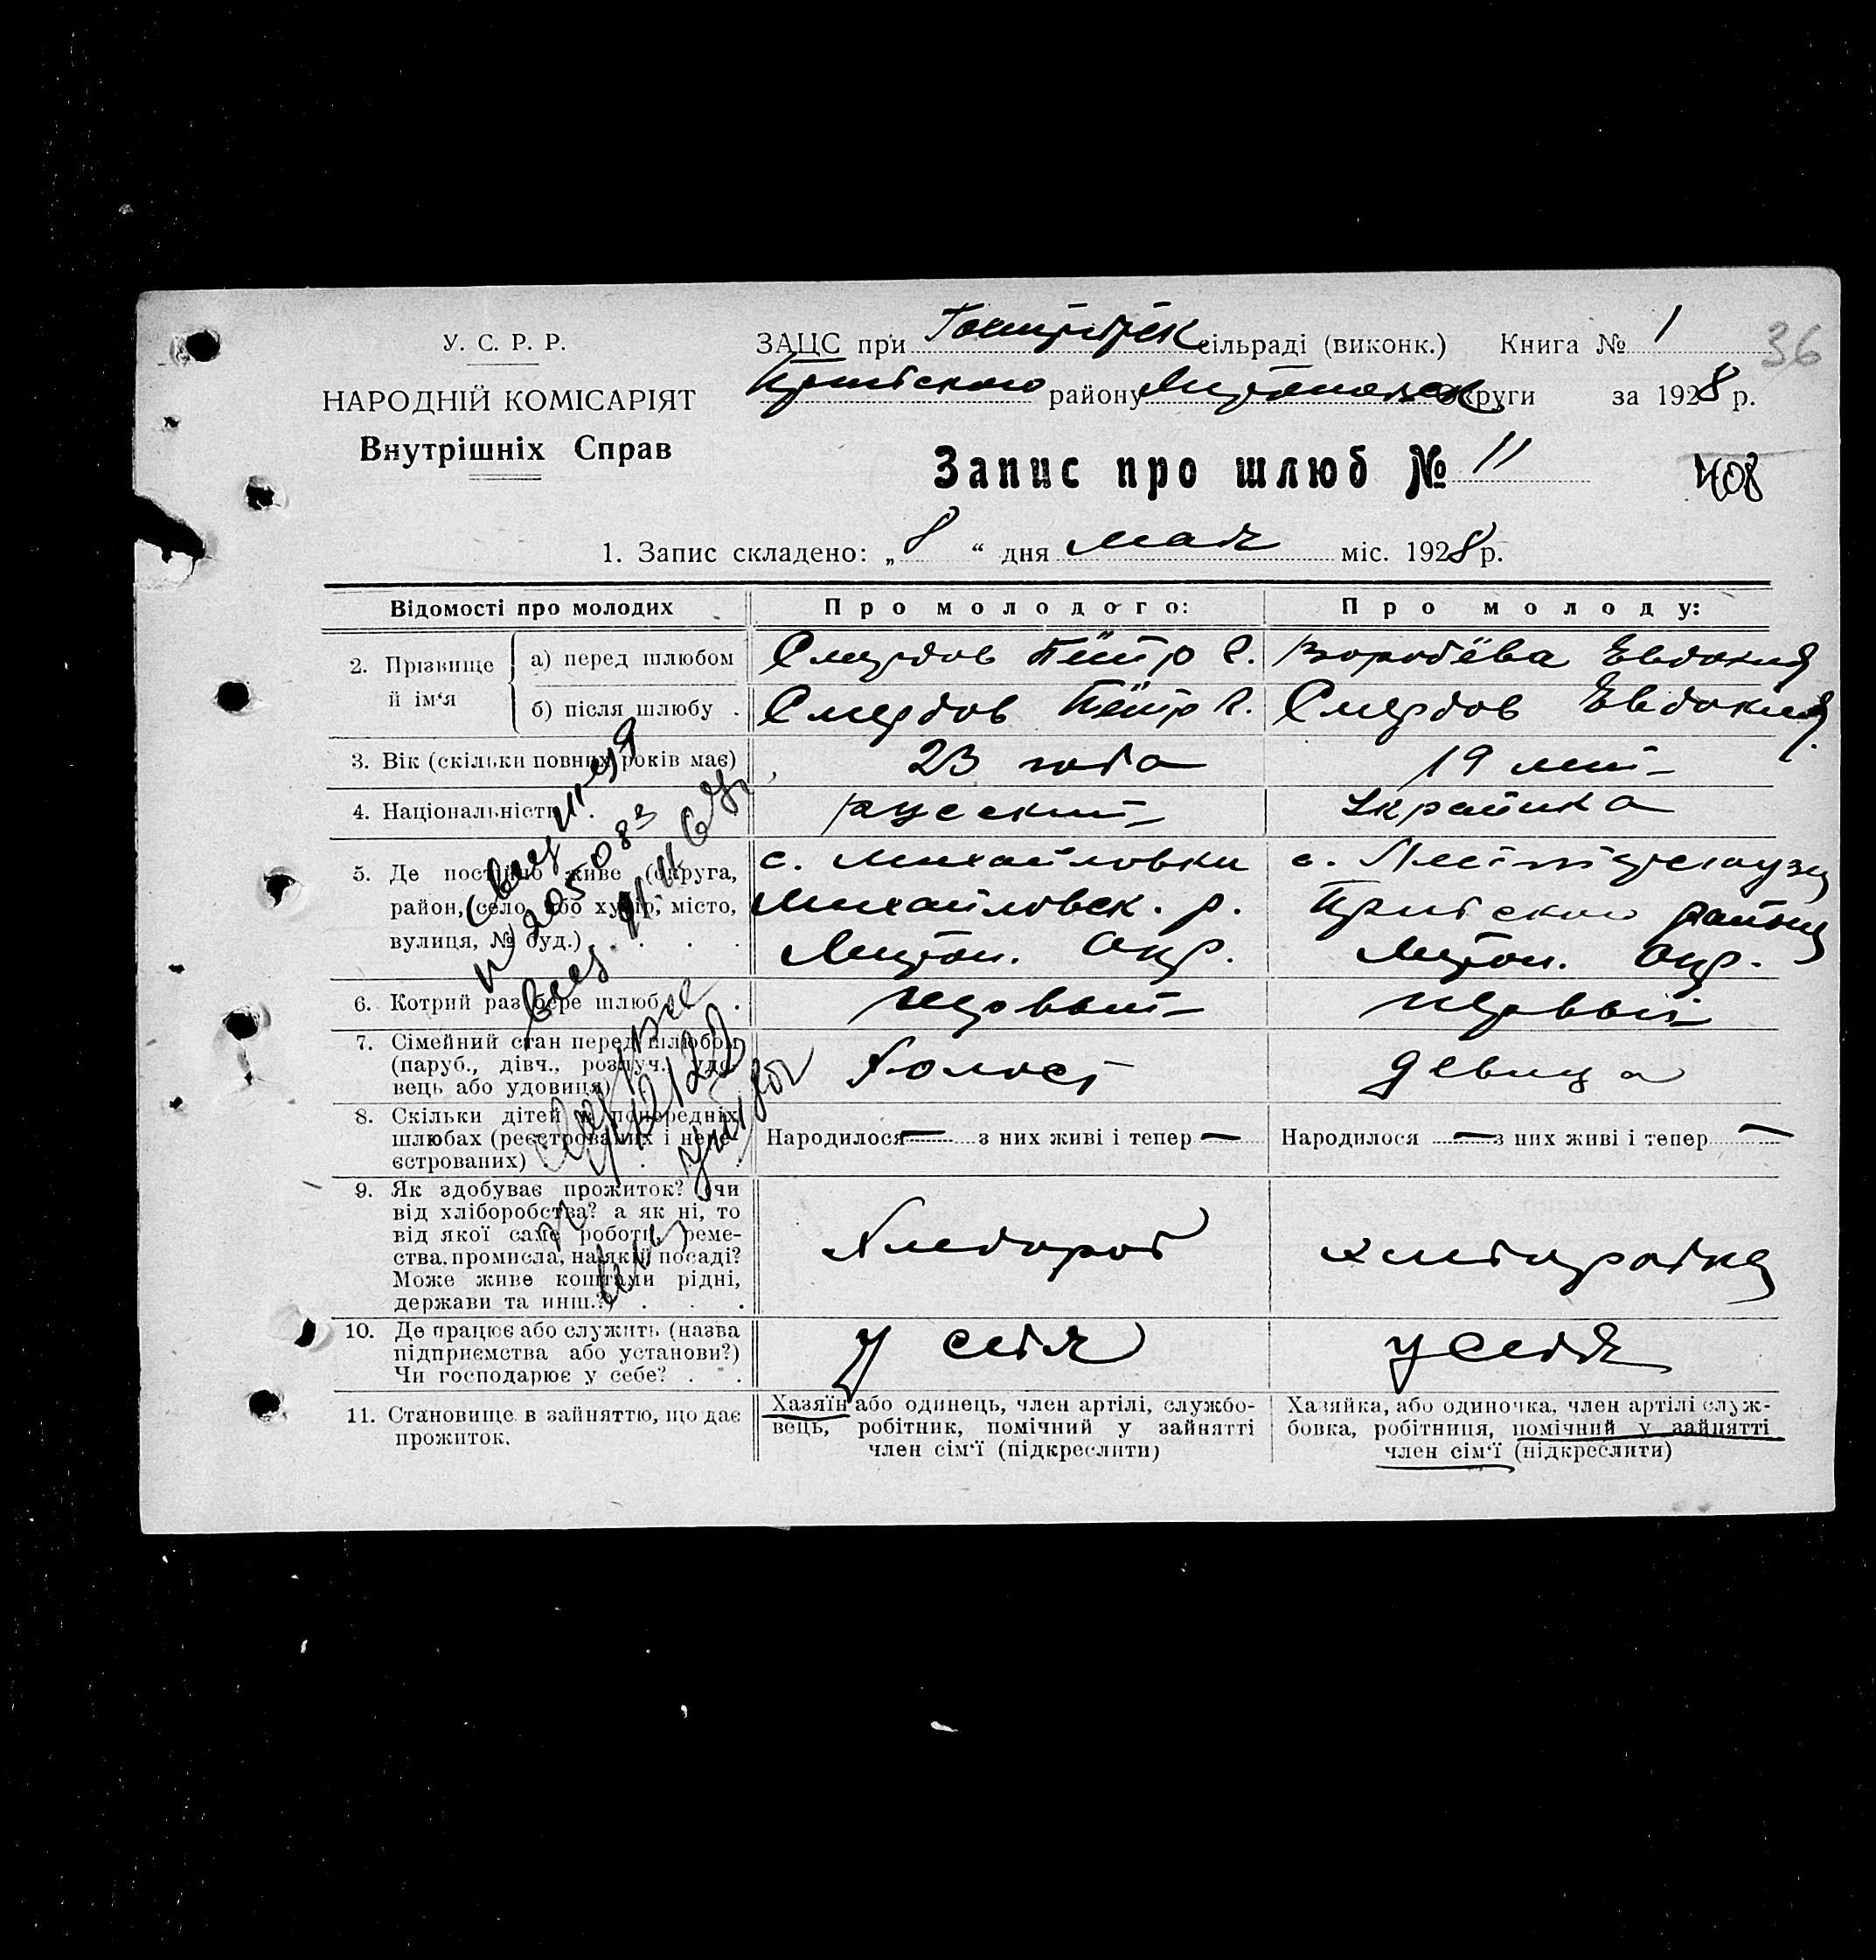 У. С. Р. Р.
НАРОДНІЙ КОМІСАРІЯТ
Внутрішніх Справ
ЗАЦС при сільраді (виконк.) Книга № 1
36
Пришибского району округи за 1928 р.
Запис про шлюб № 11
408
1. Запис складено: „ 8 “ дня мая міс. 1928 р.
Відомості про молодих
Про молодого:
Про молоду:
2. Прізвище й ім‘я
а) перед шлюбом
Смердов Пётр С.
Воробёва Евдокия
б) після шлюбу .
Смердов Пётр С.
Смердов Евдокия
3. Вік (скільки повних років має)
23 года
19 лет
4. Національність .
русский
Украинка
5. Де постійно живе (округа,
район, село, або хутір, місто,
вулиця, № буд.) . . . .
с. Михайловки
Михайловск. р.
Мелитоп. Окр.
с.
Пришибского района
Мелитоп. Окр.
6. Котрий раз бере шлюб . .
первый
первый
7. Сімейний стан перед шлюбом
(паруб., дівч., розлуч., удо-
вець або удовиця)
Холост
девица
8. Скільки дітей в попередніх
шлюбах (реєстрованих і нере-
єстрованих) . . .
Народилося — з них живі і тепер —
Народилося — з них живі і тепер —
9. Як здобуває прожиток? (чи
від хліборобства? а як ні, то
від якої саме роботи, реме-
ства, промисла, на якій посаді?
Може живе коштами рідні,
держави та инш.?) . . .
Хлебороб
хлеборобка
10. Де працює або служить (назва
підприємства або установи?)
Чи господарює у себе? . .
у себя
у себя
11. Становище в зайняттю, що дає
прожиток.
Хазяїн або одинець, член артілі, службо-
вець, робітник, помічний у зайнятті
член сім‘ї (підкреслити)
Хазяйка, або одиночка, член артілі служ-
бовка, робітниця, помічний у зайнятті
член сім‘ї (підкреслити)